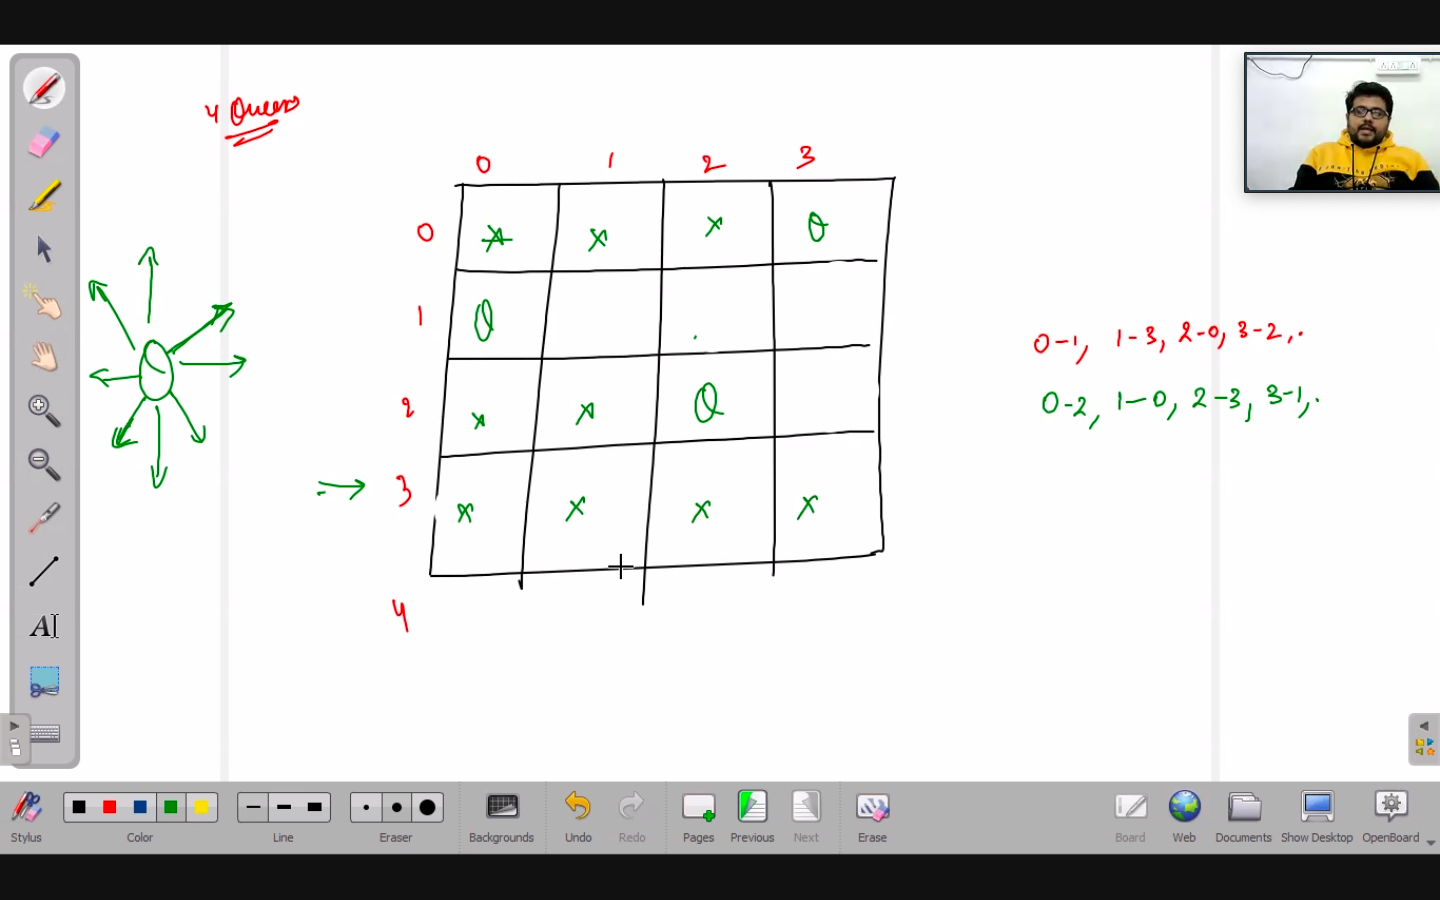 4 Queens
0 1 2 3
0 x x x Q
1 Q
2 x x Q
3 x x x x
4
0-1, 1-3, 2-0, 3-2,.
0-2, 1-0, 2-3, 3-1,.
A
Stylus
Color
Line
Eraser
Backgrounds
Undo
Redo
Pages
Previous
Next
Erase
Board
Web
Documents
Show Desktop
OpenBoard